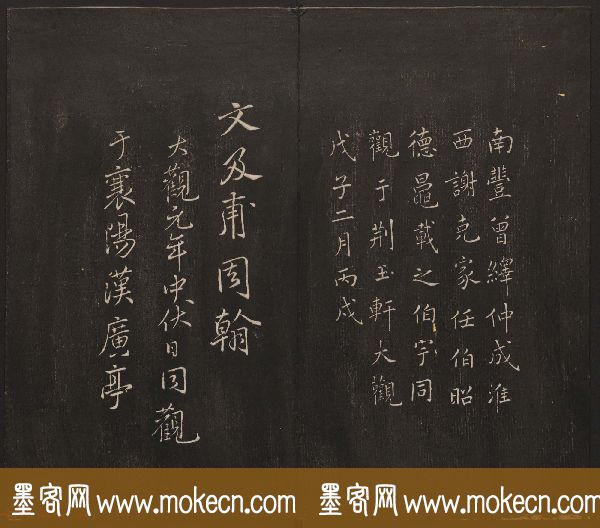 南豐曾繹仲成淮
西謝克家任伯昭
德鼂載之伯宇同
觀于荆玉軒大觀
戊子二月丙戌
文及甫周翰
大觀元年中伏日同觀
于襄陽漢廣亭
墨客网 www.mokecn.com 墨客网 www.mokecn.com